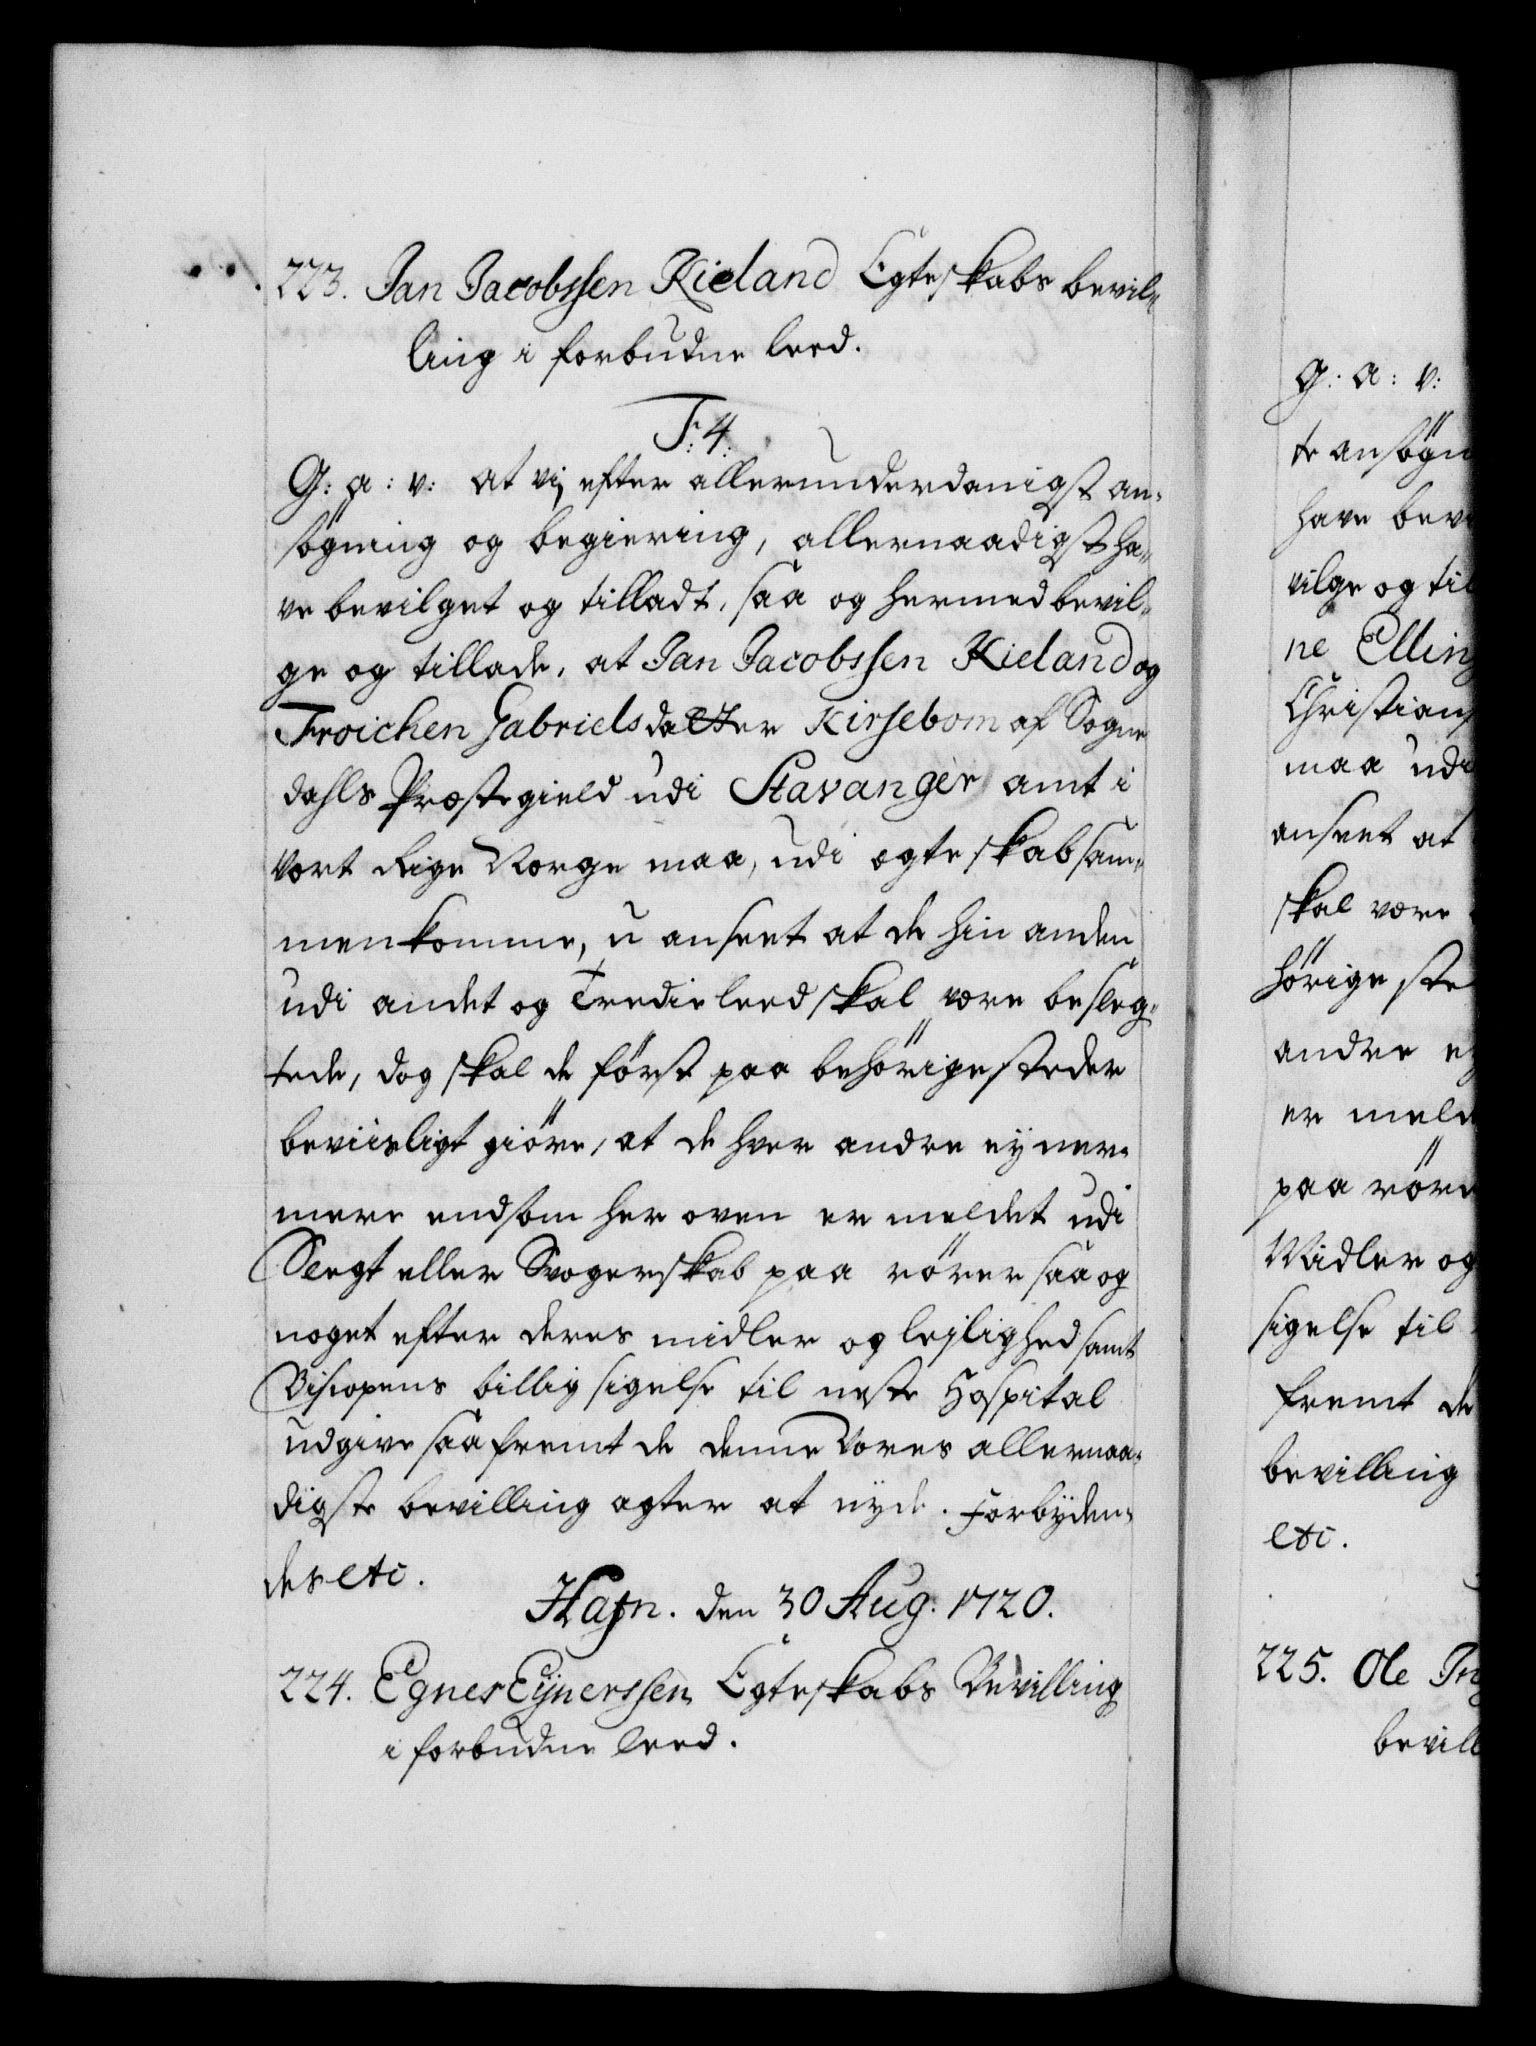 223. Jan Jacobssen Kieland Egteskabs bevil-
ling i forbudne leed.
F: 4.
G: a: v: at vi, efter allerunderdanigst an-
søgning og begiering, allernaadigst ha-
ve bevilget og tilladt, saa og hermed bevil-
ge og tillade, at Jan Jacobssen Kieland og
Froichen Gabrielsdatter Kirsebom af Sogne
dahls Præstegield udi Stavanger amt i
vort Rige Norge maa, udi egteskab sam-
menkomme, u anseet at de hin anden
udi andet og Tredie leed skal være besleg-
tede, dog skal de först paa behörige steder
beviisligt giöre, at de hver andre ey ner-
mere end som her oven er meldet udi
Slegt eller Svogerskab paa rörer saa og
noget efter deres midler og lejlighed samt
Biscopens billigsigelse til neste Hospital
udgive saafremt de denne Vores allernaa-
digste bevilling agter at nyde. Forbyden-
des etc.
Hafn. den 30 Aug: 1720.
224. Egner Eynerssen Egteskabs Bevilling
i forbudne Leed.
G: a: v:
te ansøgn
have bev
vilge og til
ne Elling
Christians
maa udi
anseet at
skal være
hörige ste
andre ey
er meld
paa röre
Midler og
sigelse til
fremt de
bevilling
etc.
225. Ole
bevill